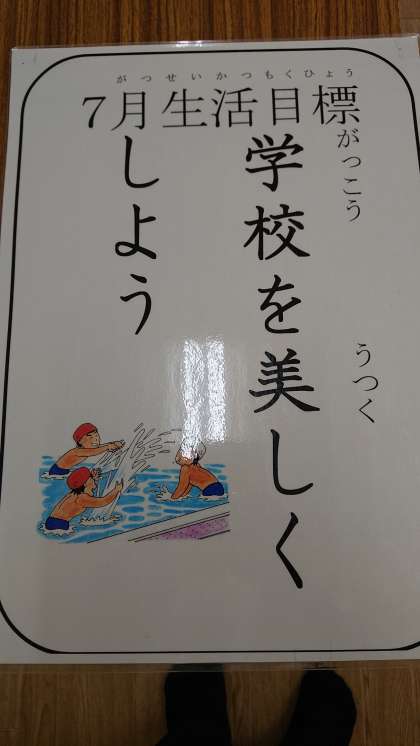 がつせいかつもくひょう
7月生活目標
学校を美しく
がっこう
うつく
しよう